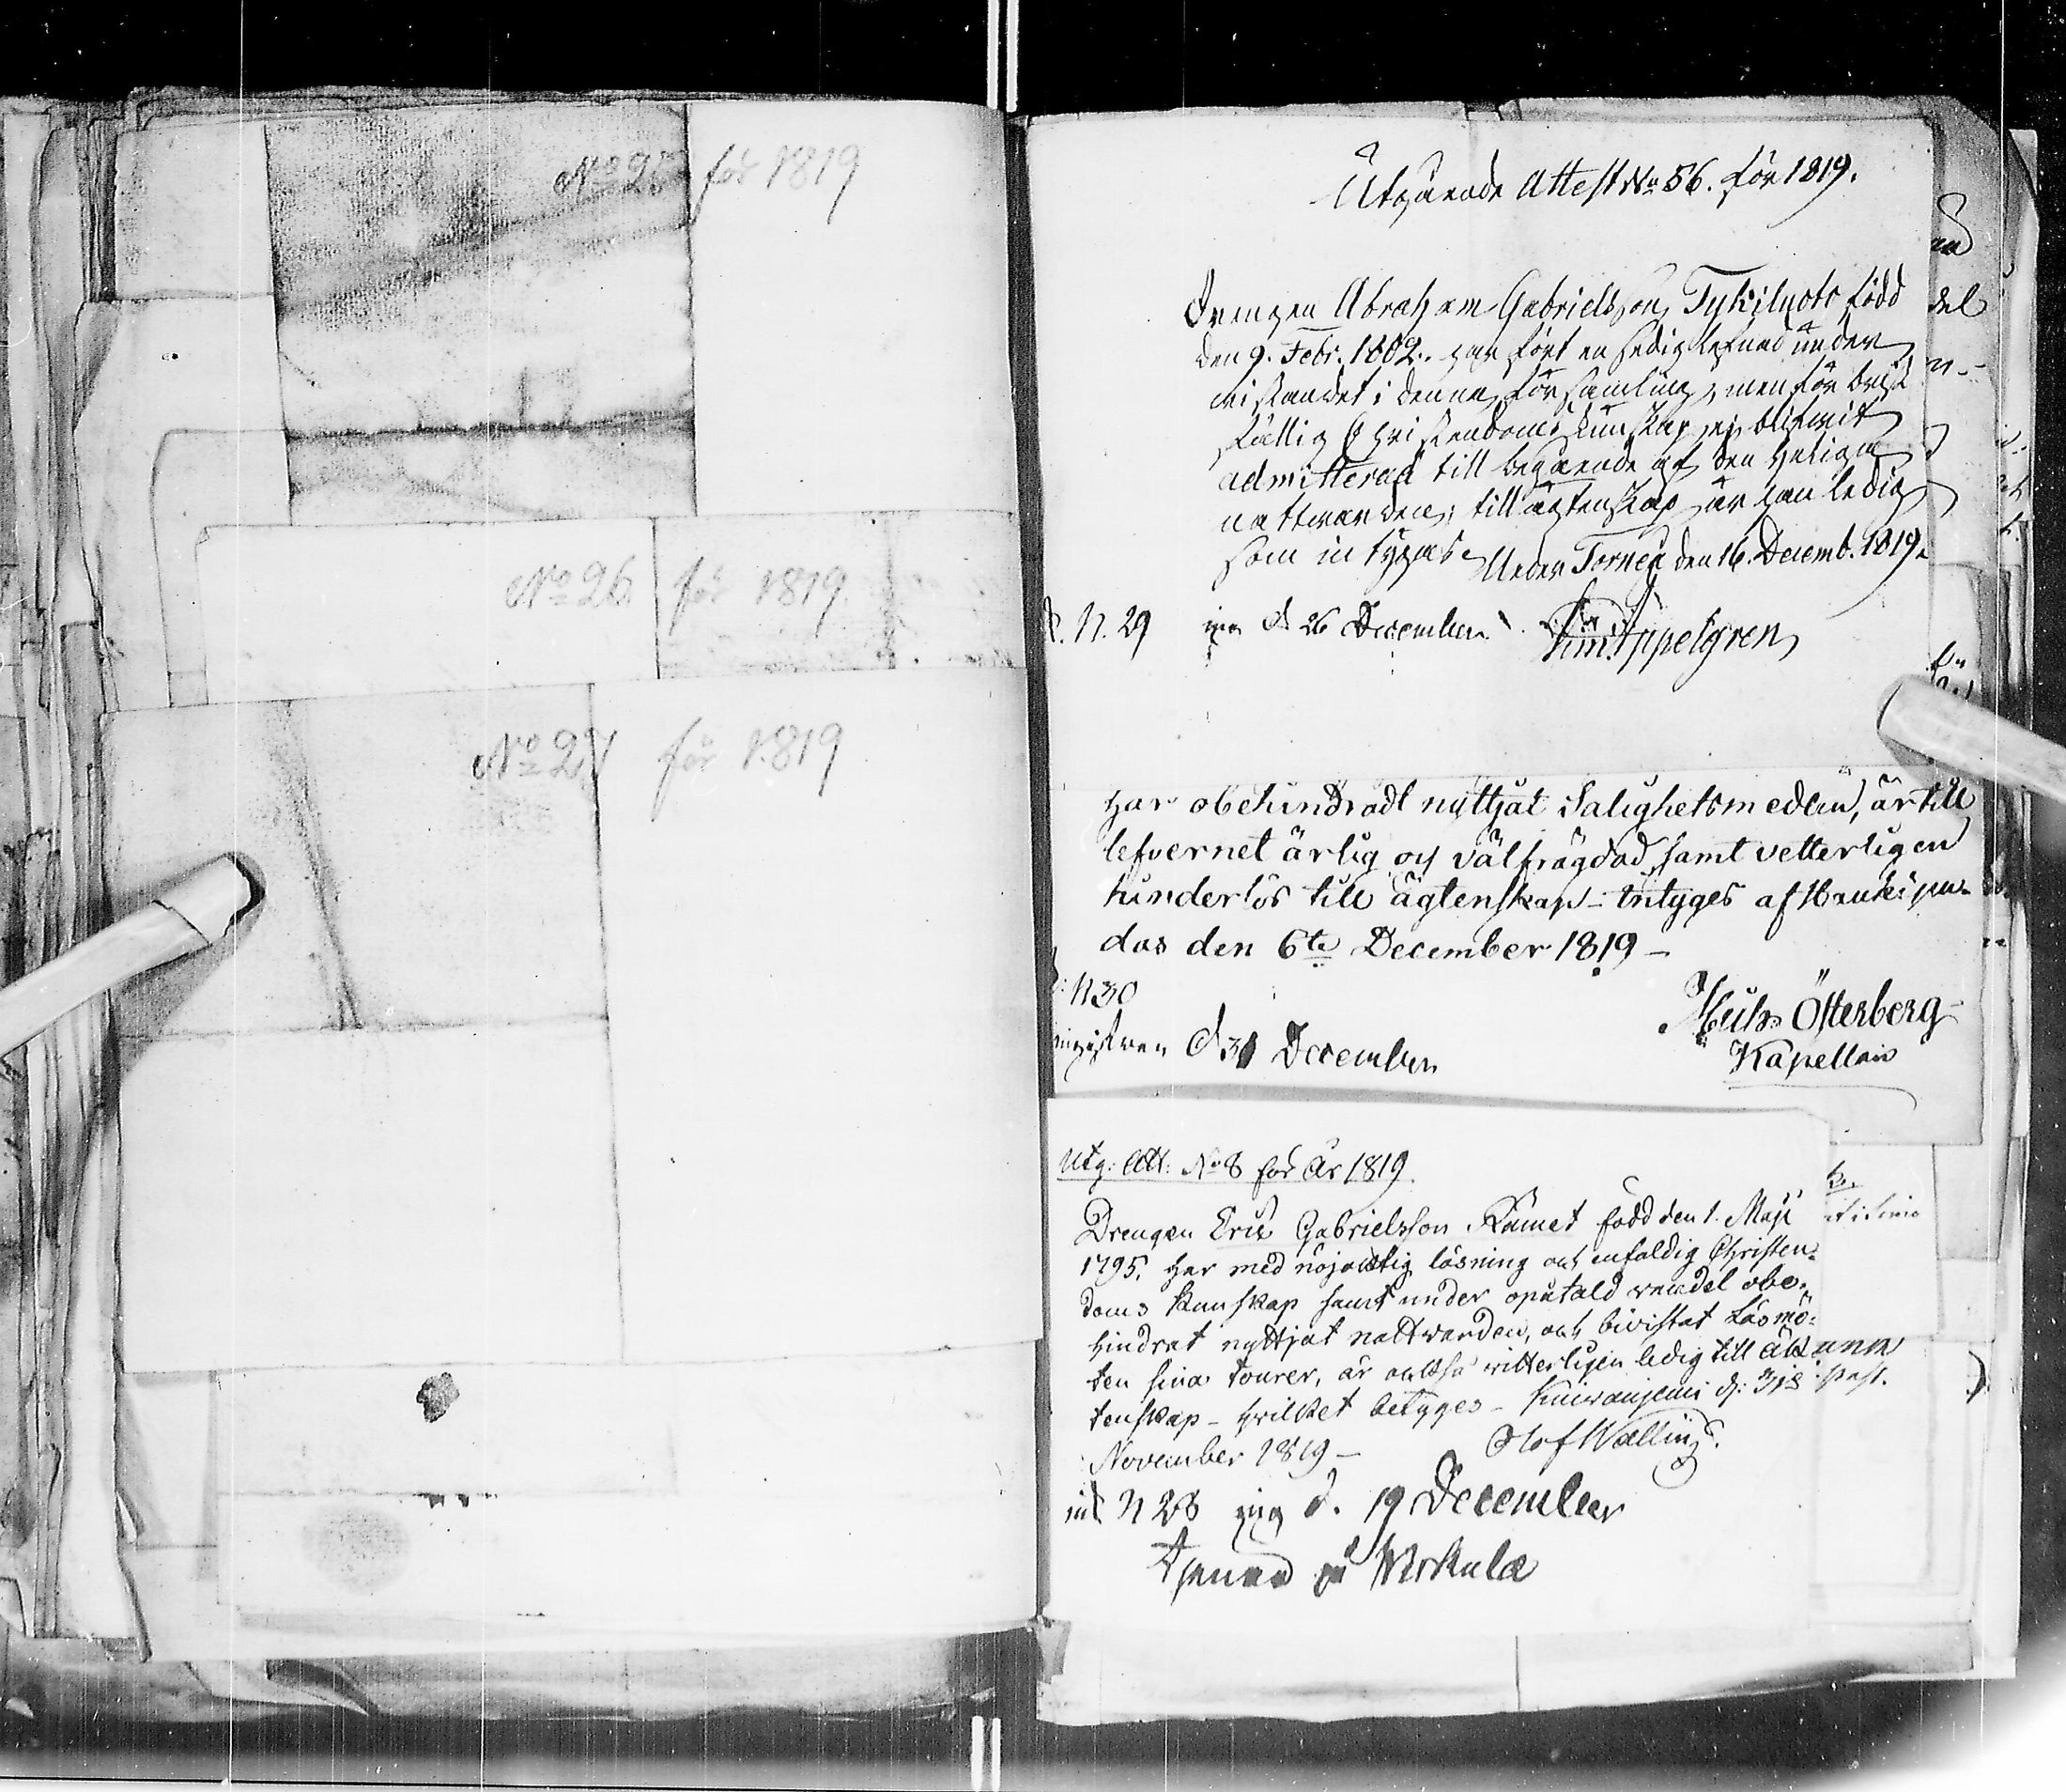 No 25 för 1819
No 26 för 1819.
No 27 för 1819
Utgående Attest No 56. för 1819.
Drengen Abraham Gabrielsson Tykiluoto född
den 9. Febr. 1802. har fört en sedig lefnad under
vistandet i denna församling, men för brist
fällig Christendoms kunskap ej blifvit
admitterad till begående af den Heliga
nattvarden; till ägtenskap är han ledig
som intygas. Neder Torneå den 16. Decemb. 1819.
N. 29 d 26 December Appelgren
Har obehindradt nyttjat Salighetsmedlen, är till
lefvernet ärlig och välfrägdad, samt vetterligen
hinderlös till ägtenskap - Intyges af Haukipu-
das den 6te December 1819 -
N 30
Österberg
d 31 December
Kapellan
Utg: Att: No 8 för År 1819.
Drengen Eric Gabrielsson Kämet född den 1. Maji
1795. Har med nöjaktig läsning och enfaldig Christen-
doms kunskap samt under opåtald vandel obe-
hindrat nyttjat nattvarden, och bivistat Läsmö-
ten sina tourer, är ock witterligen ledig till Äk
tenskap - hvilket betyges - Kuivaniemi d: 3je
November 1819 - Olof Walling.
N 28 d. 19 December
tjenar på Wirkula